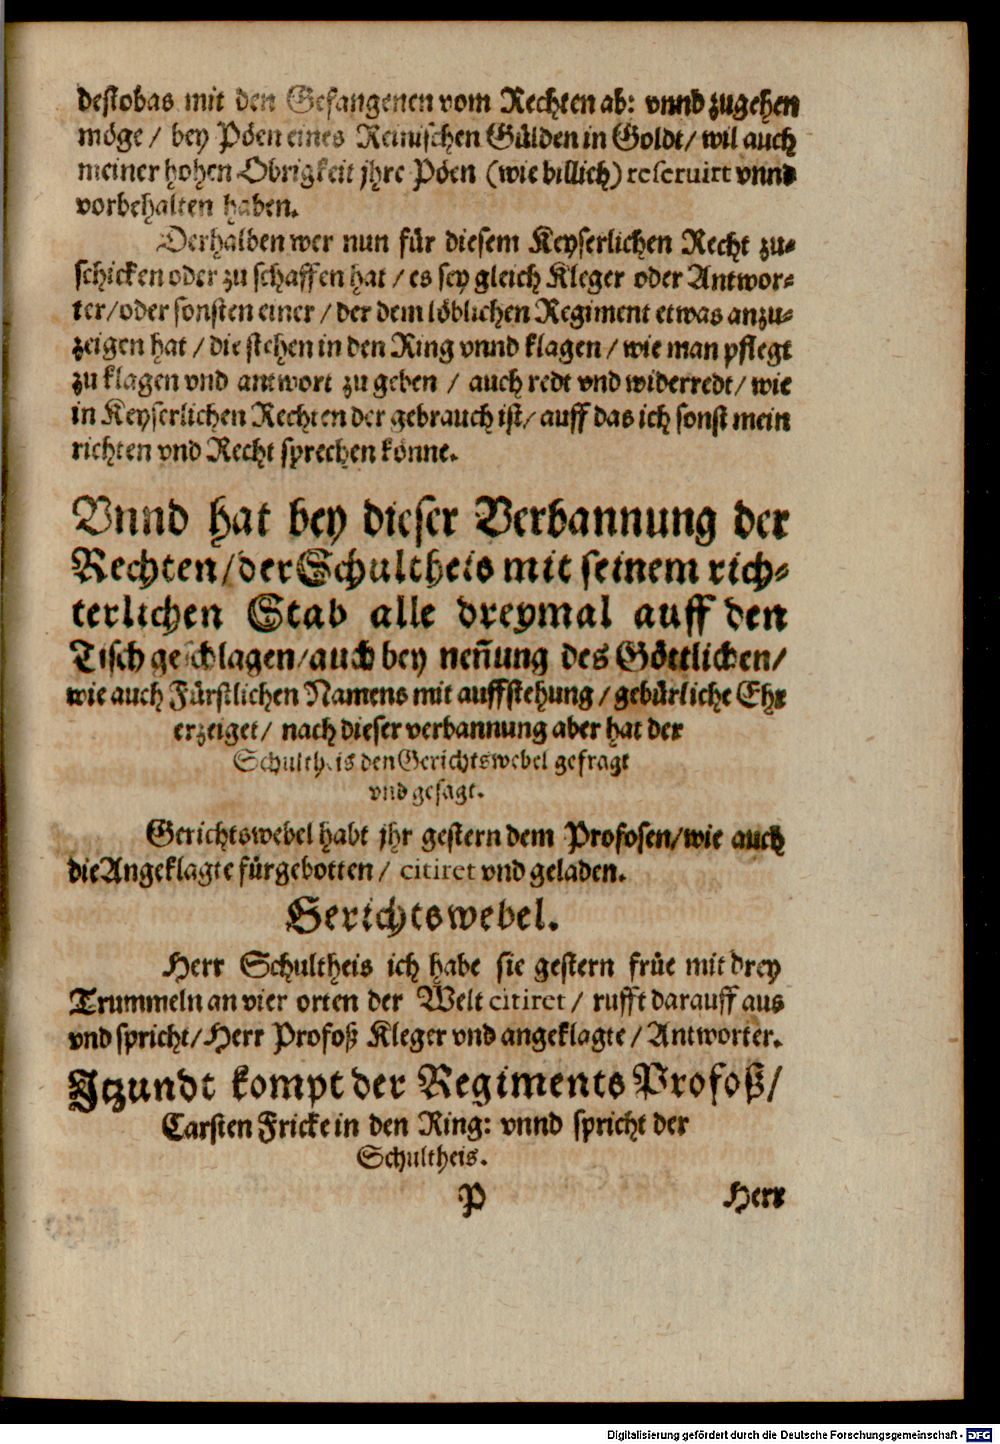 destobas mit den Gefangenen vom Rechten ab: vnnd zugehen
möge / bey Pöen eines Reinischen Gülden in Goldt / wil auch
meiner hohen Obrigkeit jhre Pöen (wie billich) reseruirt vnnd
vorbehalten haben.
Derhalben wer nun für diesem Keyserlichen Recht zu-
schicken oder zu schaffen hat / es sey gleich Kleger oder Antwor-
ter / oder sonsten einer / der dem löblichen Regiment etwas anzu-
zeigen hat / die stehen in den Ring vnnd klagen / wie man pflegt
zu klagen vnd antwort zu geben / auch redt vnd widerredt / wie
in Keyserlichen Rechten der gebrauch ist / auff das ich sonst mein
richten vnd Recht sprechen könne.
Vnnd hat bey dieser Verbannung der
Rechten / der Schultheis mit seinem rich-
terlichen Stab alle dreymal auff den
Tisch geschlagen / auch bey neñung des Göttlichen /
wie auch Fürstlichen Namens mit auffstehung / gebürliche Ehr
erzeiget / nach dieser verbannung aber hat der
Schultheis den Gerichtswebel gefragt
vnd gesagt.
Gerichtswebel habt jhr gestern dem Profosen / wie auch
die Angeklagte fürgebotten / citiret vnd geladen.
Gerichtswebel.
Herr Schultheis ich habe sie gestern früe mit drey
Trummeln an vier orten der Welt citiret / rufft darauff aus
vnd spricht / Herr Profoß Kleger vnd angeklagte / Antworter.
Jtzundt kompt der Regiments Profoß /
Carsten Fricke in den Ring: vnnd spricht der
Schultheis.
P Herr
Digitalisierung gefördert durch die Deutsche Forschungsgemeinschaft - DFG